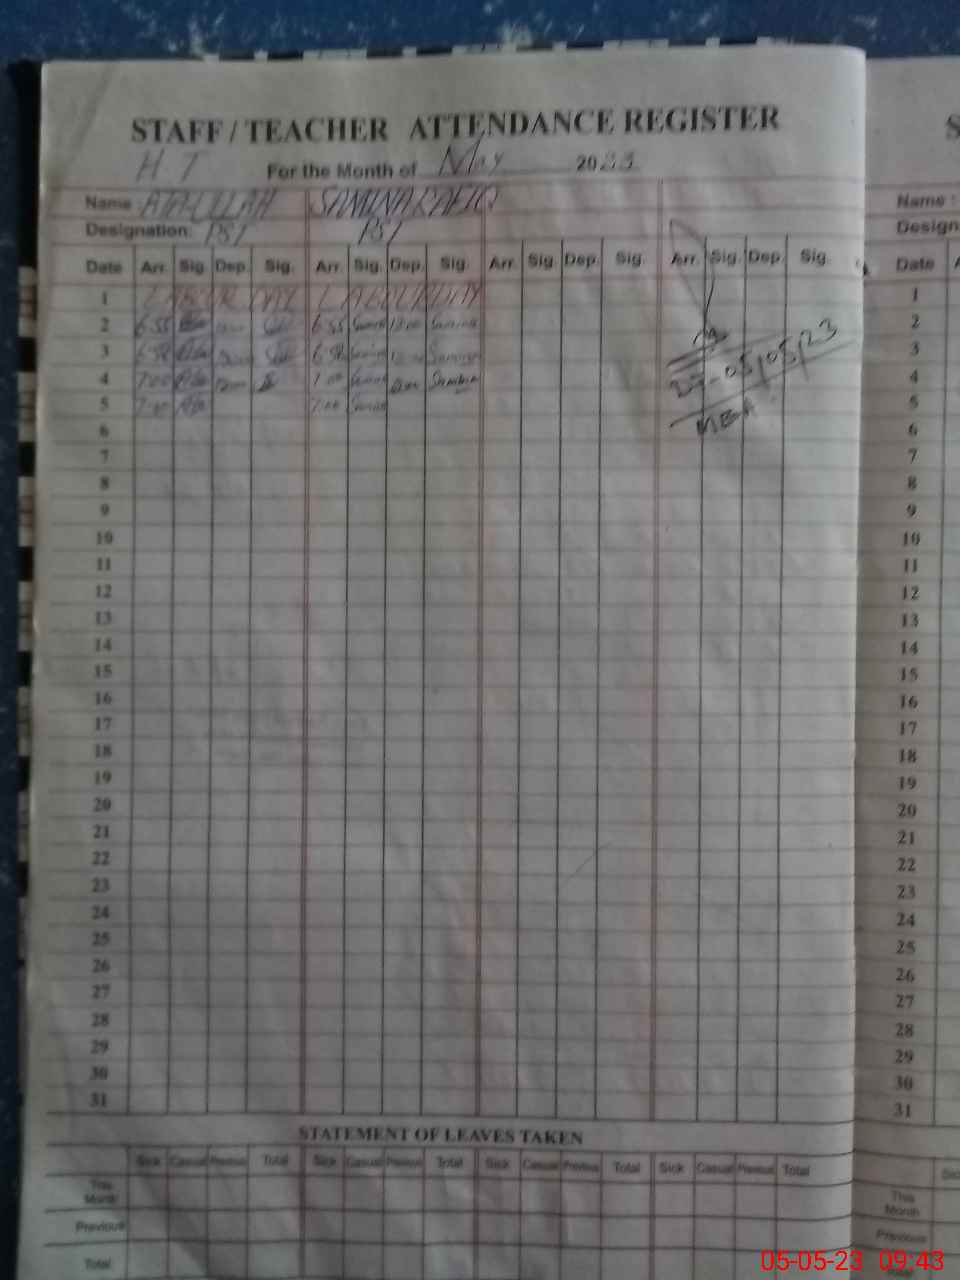 STAFF / TEACHER ATTENDANCE REGISTER
H T For the Month of May 2023
Name ATAULLAH SAMINA RAFIQ Name :
Designation: PST PST Design
Date Arr. Sig. Dep. Sig. Arr. Sig. Dep. Sig. Arr. Sig. Dep. Sig. Arr. Sig. Dep. Sig. Date
1 LABOUR DAY LABOUR DAY 1
2 6:55 6:55 12:00 Samina 2
3 6:58 6:58 12:00 Samina 3
4 7:00 12:00 7:00 12:00 Samina 4
5 7:00 7:00 5
05/05/23
MEA
6 6
7 7
8 8
9 9
10 10
11 11
12 12
13 13
14 14
15 15
16 16
17 17
18 18
19 19
20 20
21 21
22 22
23 23
24 24
25 25
26 26
27 27
28 28
29 29
30 30
31 31
STATEMENT OF LEAVES TAKEN
Sick Casual Previous Total Sick Casual Previous Total Sick Casual Previous Total Sick Casual Previous Total
This Month This Month
Previous Previous
Total Total
05-05-23 09:43